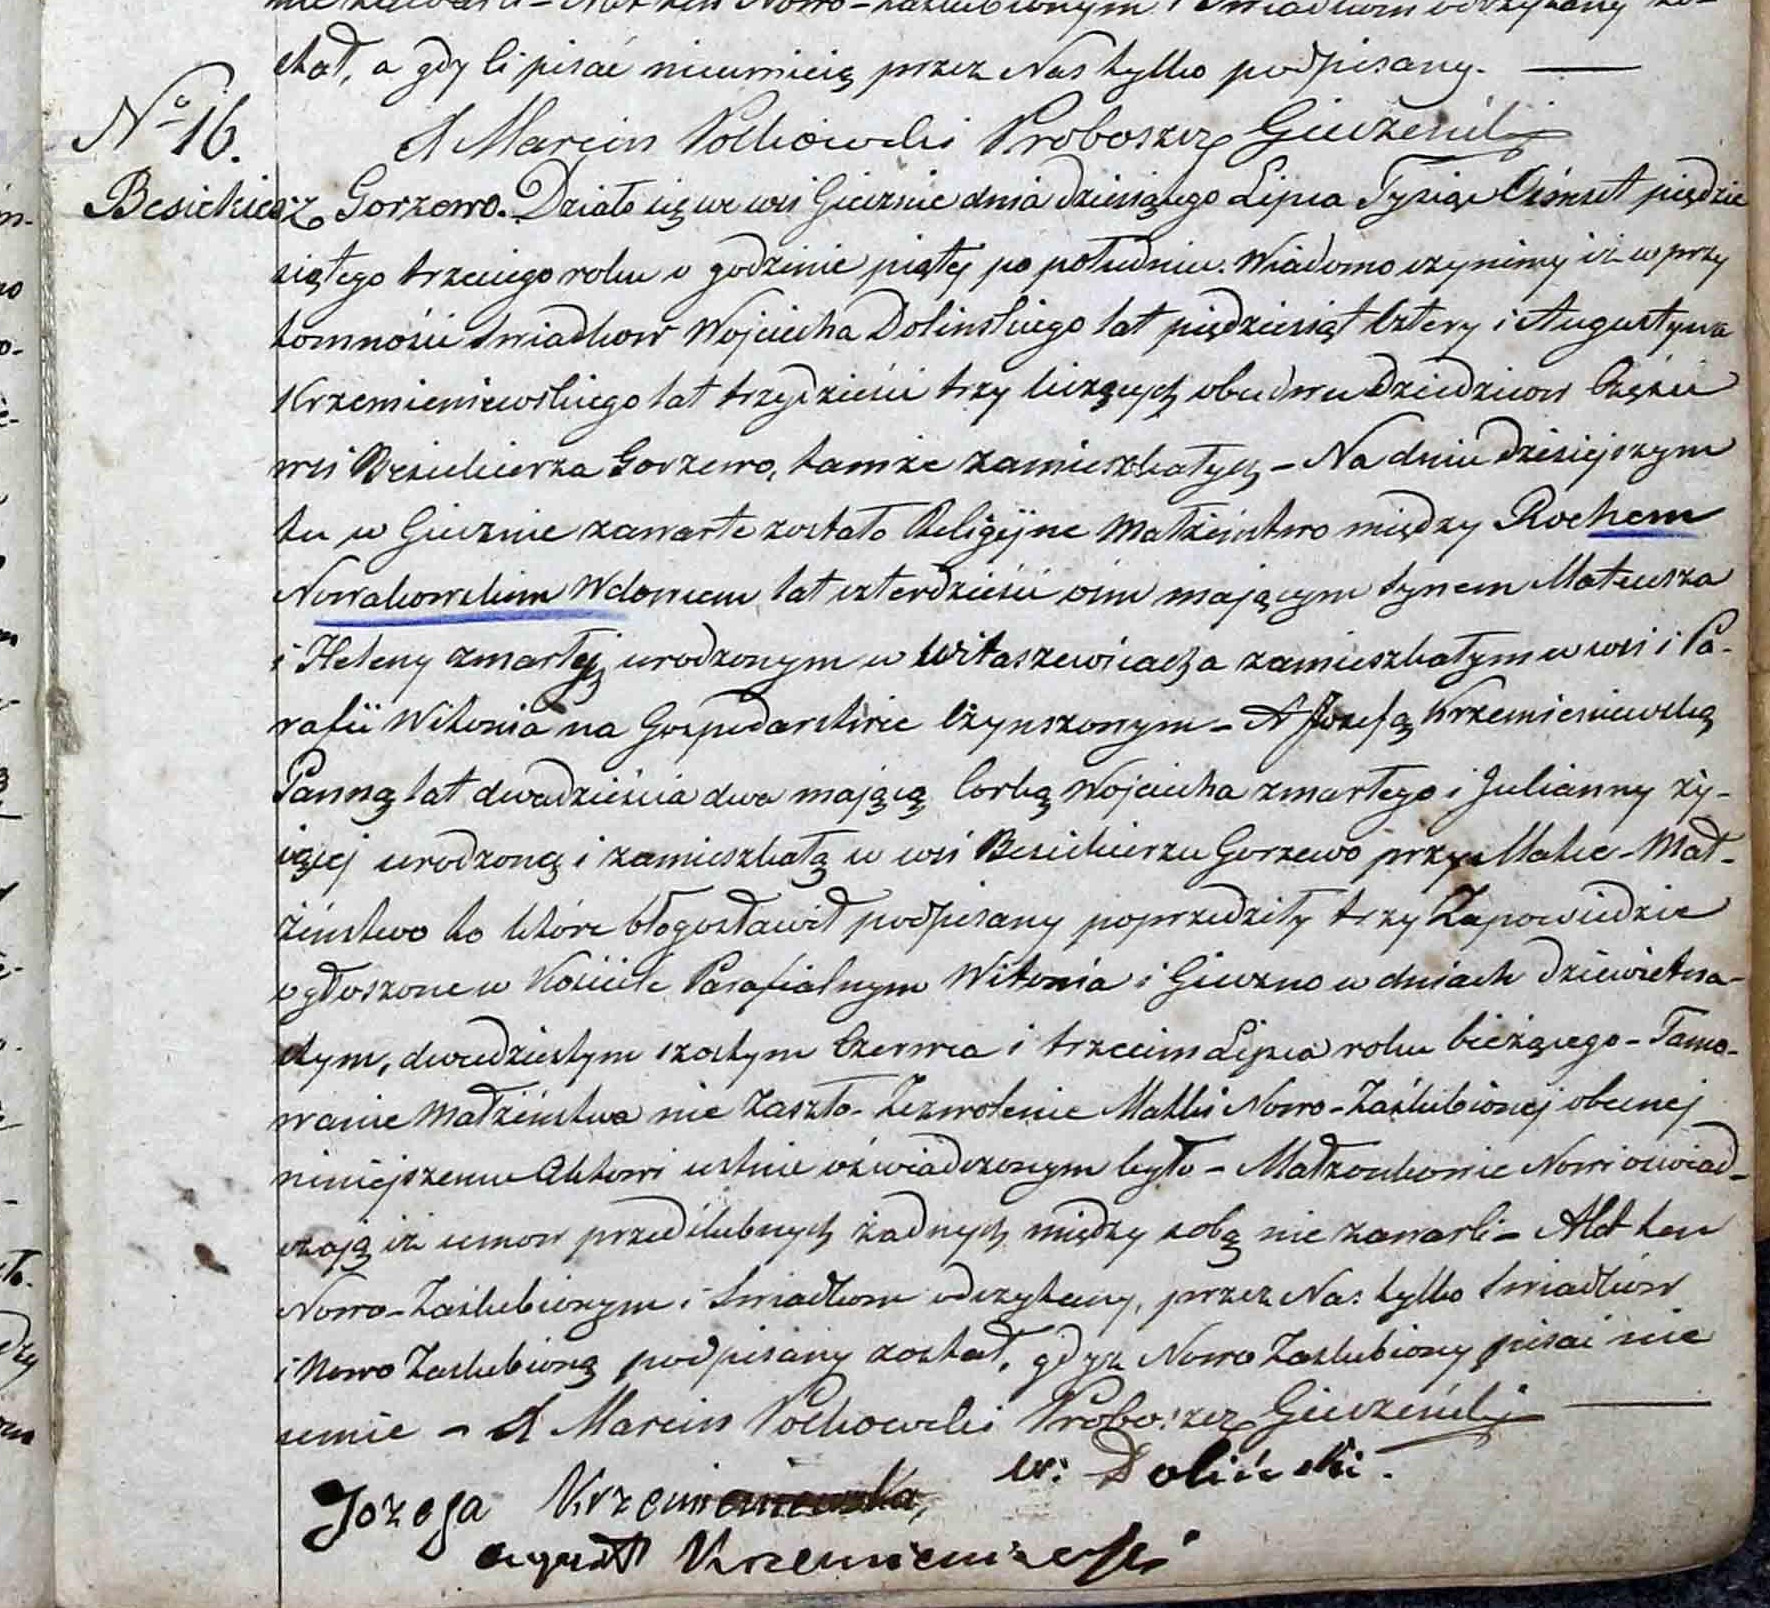 stał, a gdy ci pisać nieumieią przez Nas tylko podpisany.
No 16.
X Marcin Pockowski Proboszcz Gieczeński
Besiekierz Gorzewo. Działo się we wsi Giecznie dnia dziesiątego Lipca Tysiąc Ośmset piędzie
siątego trzeciego roku o godzinie piątej po południu. Wiadomo czynimy iż w przy
tomności Swiadkow Woyciecha Dolinskiego lat piędziesiąt cztery i Augustyna
Krzemieniewskiego lat trzydzieści trzy liczących obudwu Dziedzicow Części
wsi Besiekierza Gorzewo, tamże zamieszkałych – Na dniu dzisiejszym
tu w Giecznie zawarte zostało Religijne Małżeństwo między Rochem
Nowakowskim Wdowcem lat czterdzieści ośm mającym Synem Mateusza
i Heleny zmarłej urodzonym w Witaszewicach a zamieszkałym w wsi i Pa-
rafii Witonia na Gospodarstwie Czynszowym – A Jozefą Krzemieniewską
Panną lat dwadzieścia dwa mającą Corką Wojciecha zmarłego i Julianny ży-
iącej urodzoną i zamieszkałą w wsi Besiekierzu Gorzewo przy Matce – Mał-
żeństwo to które błogosławił podpisany poprzedziły trzy Zapowiedzie
ogłoszone w Kościele Parafialnym Witonia i Gieczno w dniach dziewietna-
stym, dwudziestym szostym Czerwca i trzecim Lipca roku bieżącego – Tamo-
wanie Małżeństwa nie Zaszło – Zezwolenie Matki Nowo-Zaślubionej obecnej
niniejszemu Aktowi ustnie oświadczonym było – Małżonkowie Nowi oswiad-
czają iż umow przedślubnych żadnych między sobą nie zawarli – Akt ten
Nowo-Zaślubionym i Swiadkom odczytany, przez Nas tylko Swiadków
i Nowo Zaslubioną podpisany został, gdyż Nowo Zaslubiony pisać nie
umie – X Marcin Pockowski Proboszcz Gieczeński
W: Doliński.
Jozefa Krzemieniewska
August Krzemieniewski